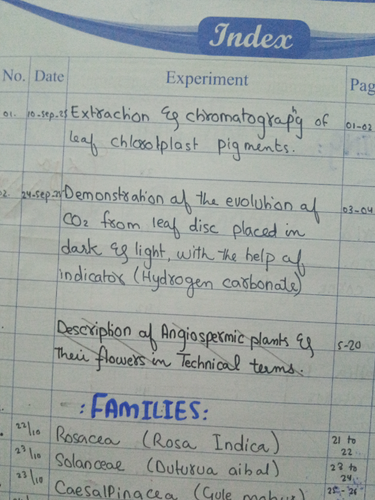 Index
No. Date Experiment Pag
01. 10-Sep-25 Extraction & chromatograpgh of 01-02
leaf chlorolplast pigments.
2. 24-Sep-25 Demonstration of the evolution of 03-04
CO2 from leaf disc placed in
dark & light, with the help of
indicator (Hydrogen carbonate)
Description of Angiospermic plants & 5-20
Their flowers in Technical terms.
: FAMILIES:
22/10 Rosacea (Rosa Indica) 21 to
22
23/10 Solanceae (Duturua aibal) 23 to
24
23/10 Caesalpinacea (Gule mohur) 25-26